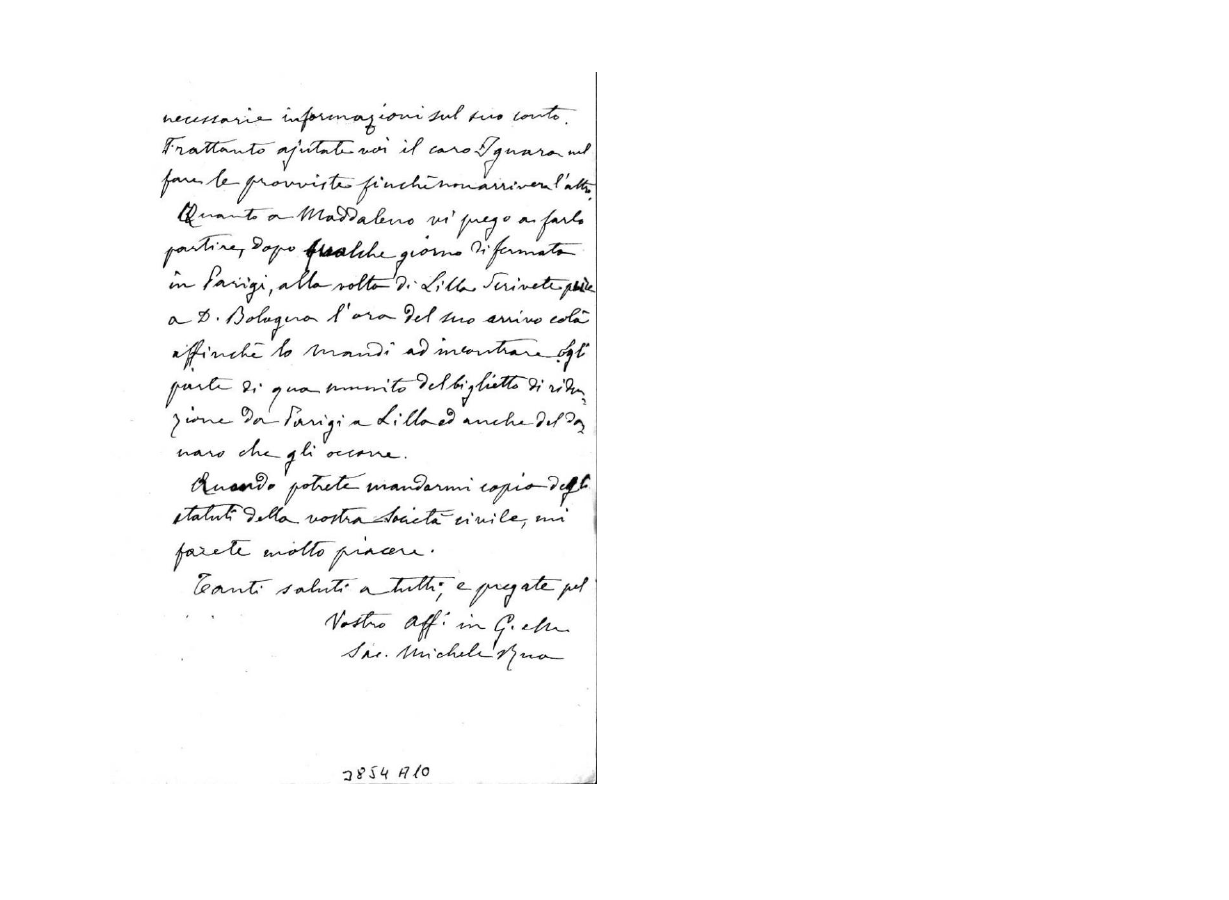 necessarie informazioni sul suo conto.
Frattanto ajutate voi il caro Ignara nel
fare le provviste finchè non arriverà l'altro.
Quanto a Maddaleno vi prego a farlo
partire, dopo qualche giorno di fermata
in Parigi, alla volta di Lilla. Scrivete
a D. Bologna l'ora del suo arrivo colà
affinchè lo mandi ad incontrare. Egli
parte di qua munito del biglietto di ridu-
zione da Parigi a Lilla ed anche del da-
naro che gli occorre.
Quando potrete mandarmi copia degli
statuti della vostra Società civile, mi
farete molto piacere.
Tanti saluti a tutti, e pregate pel
Vostro Aff. in G. e M.
Sac. Michele Rua
3854 A10